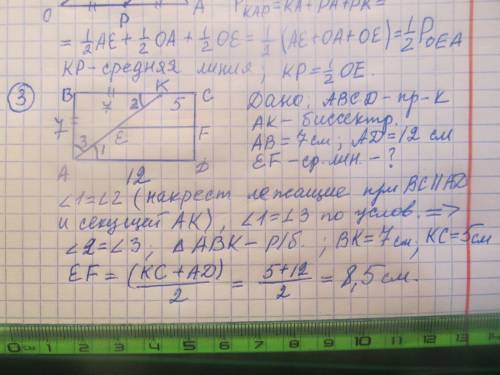 O P A P KAP = KA + PA + PK =
= 1/2 AE + 1/2 OA + 1/2 OE = 1/2 (AE + OA + OE) = 1/2 P OEA
KP - средняя линия; KP = 1/2 OE.
③
B 7 2 K 5 C
7 3 E F
A 1 12 D
Дано: ABCD - пр-к
AK - биссектр.
AB = 7см; AD = 12 см
EF - ср. лин. - ?
∠1=∠2 (накрест лежащие при BC||AD
и секущей AK), ∠1=∠3 по услов. =>
∠2=∠3; △ABK - р/б.; BK = 7 см, KC = 5см
EF = (KC + AD)/2 = 5+12/2 = 8,5 см.
0 см 1 2 3 4 5 6 7 8 9 10 11 12 13